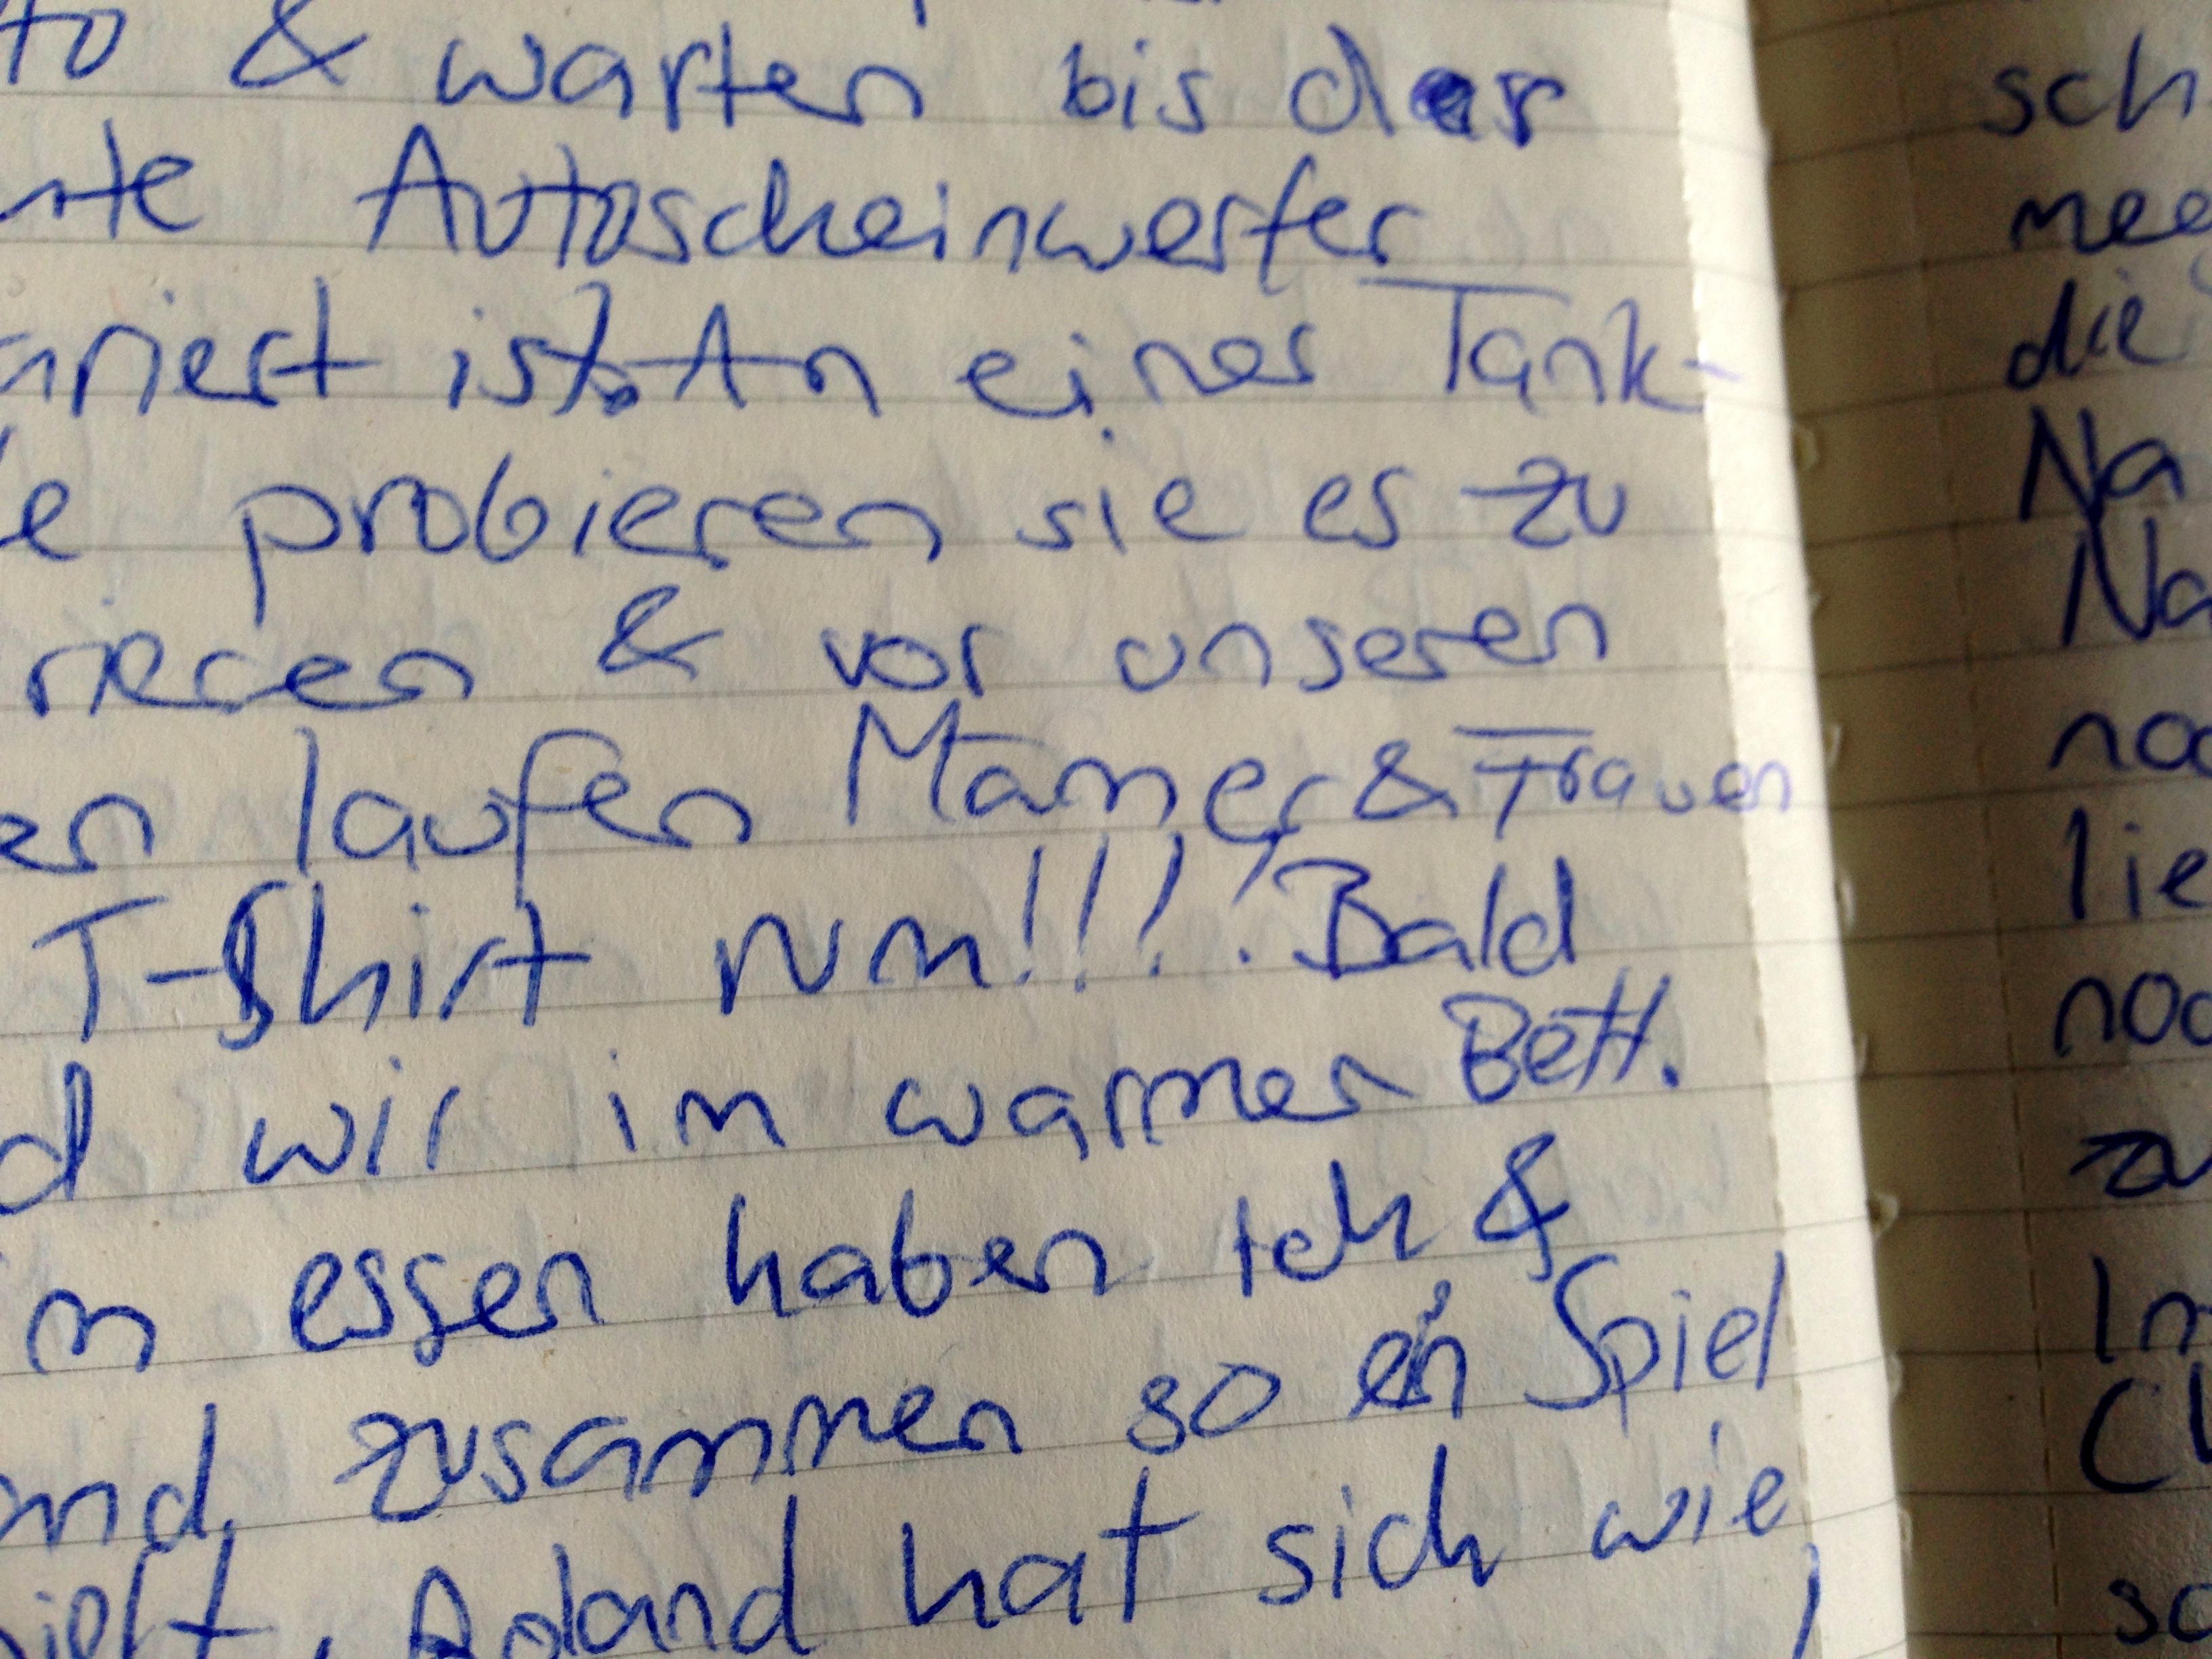 to & warten bis der
rte Autoscheinwerfer
ariert ist). An einer Tank-
le probieren sie es zu
rieren & vor unseren
en laufen Männer & Frauen
T-Shirt rum!!!! Bald
d wir im warmen Bett.
m essen haben ich &
and zusammen so ein Spiel
ielt, Roland hat sich wie
sch
mee
die
Na
Na
noc
lie
noc
zu
In
Ch
so